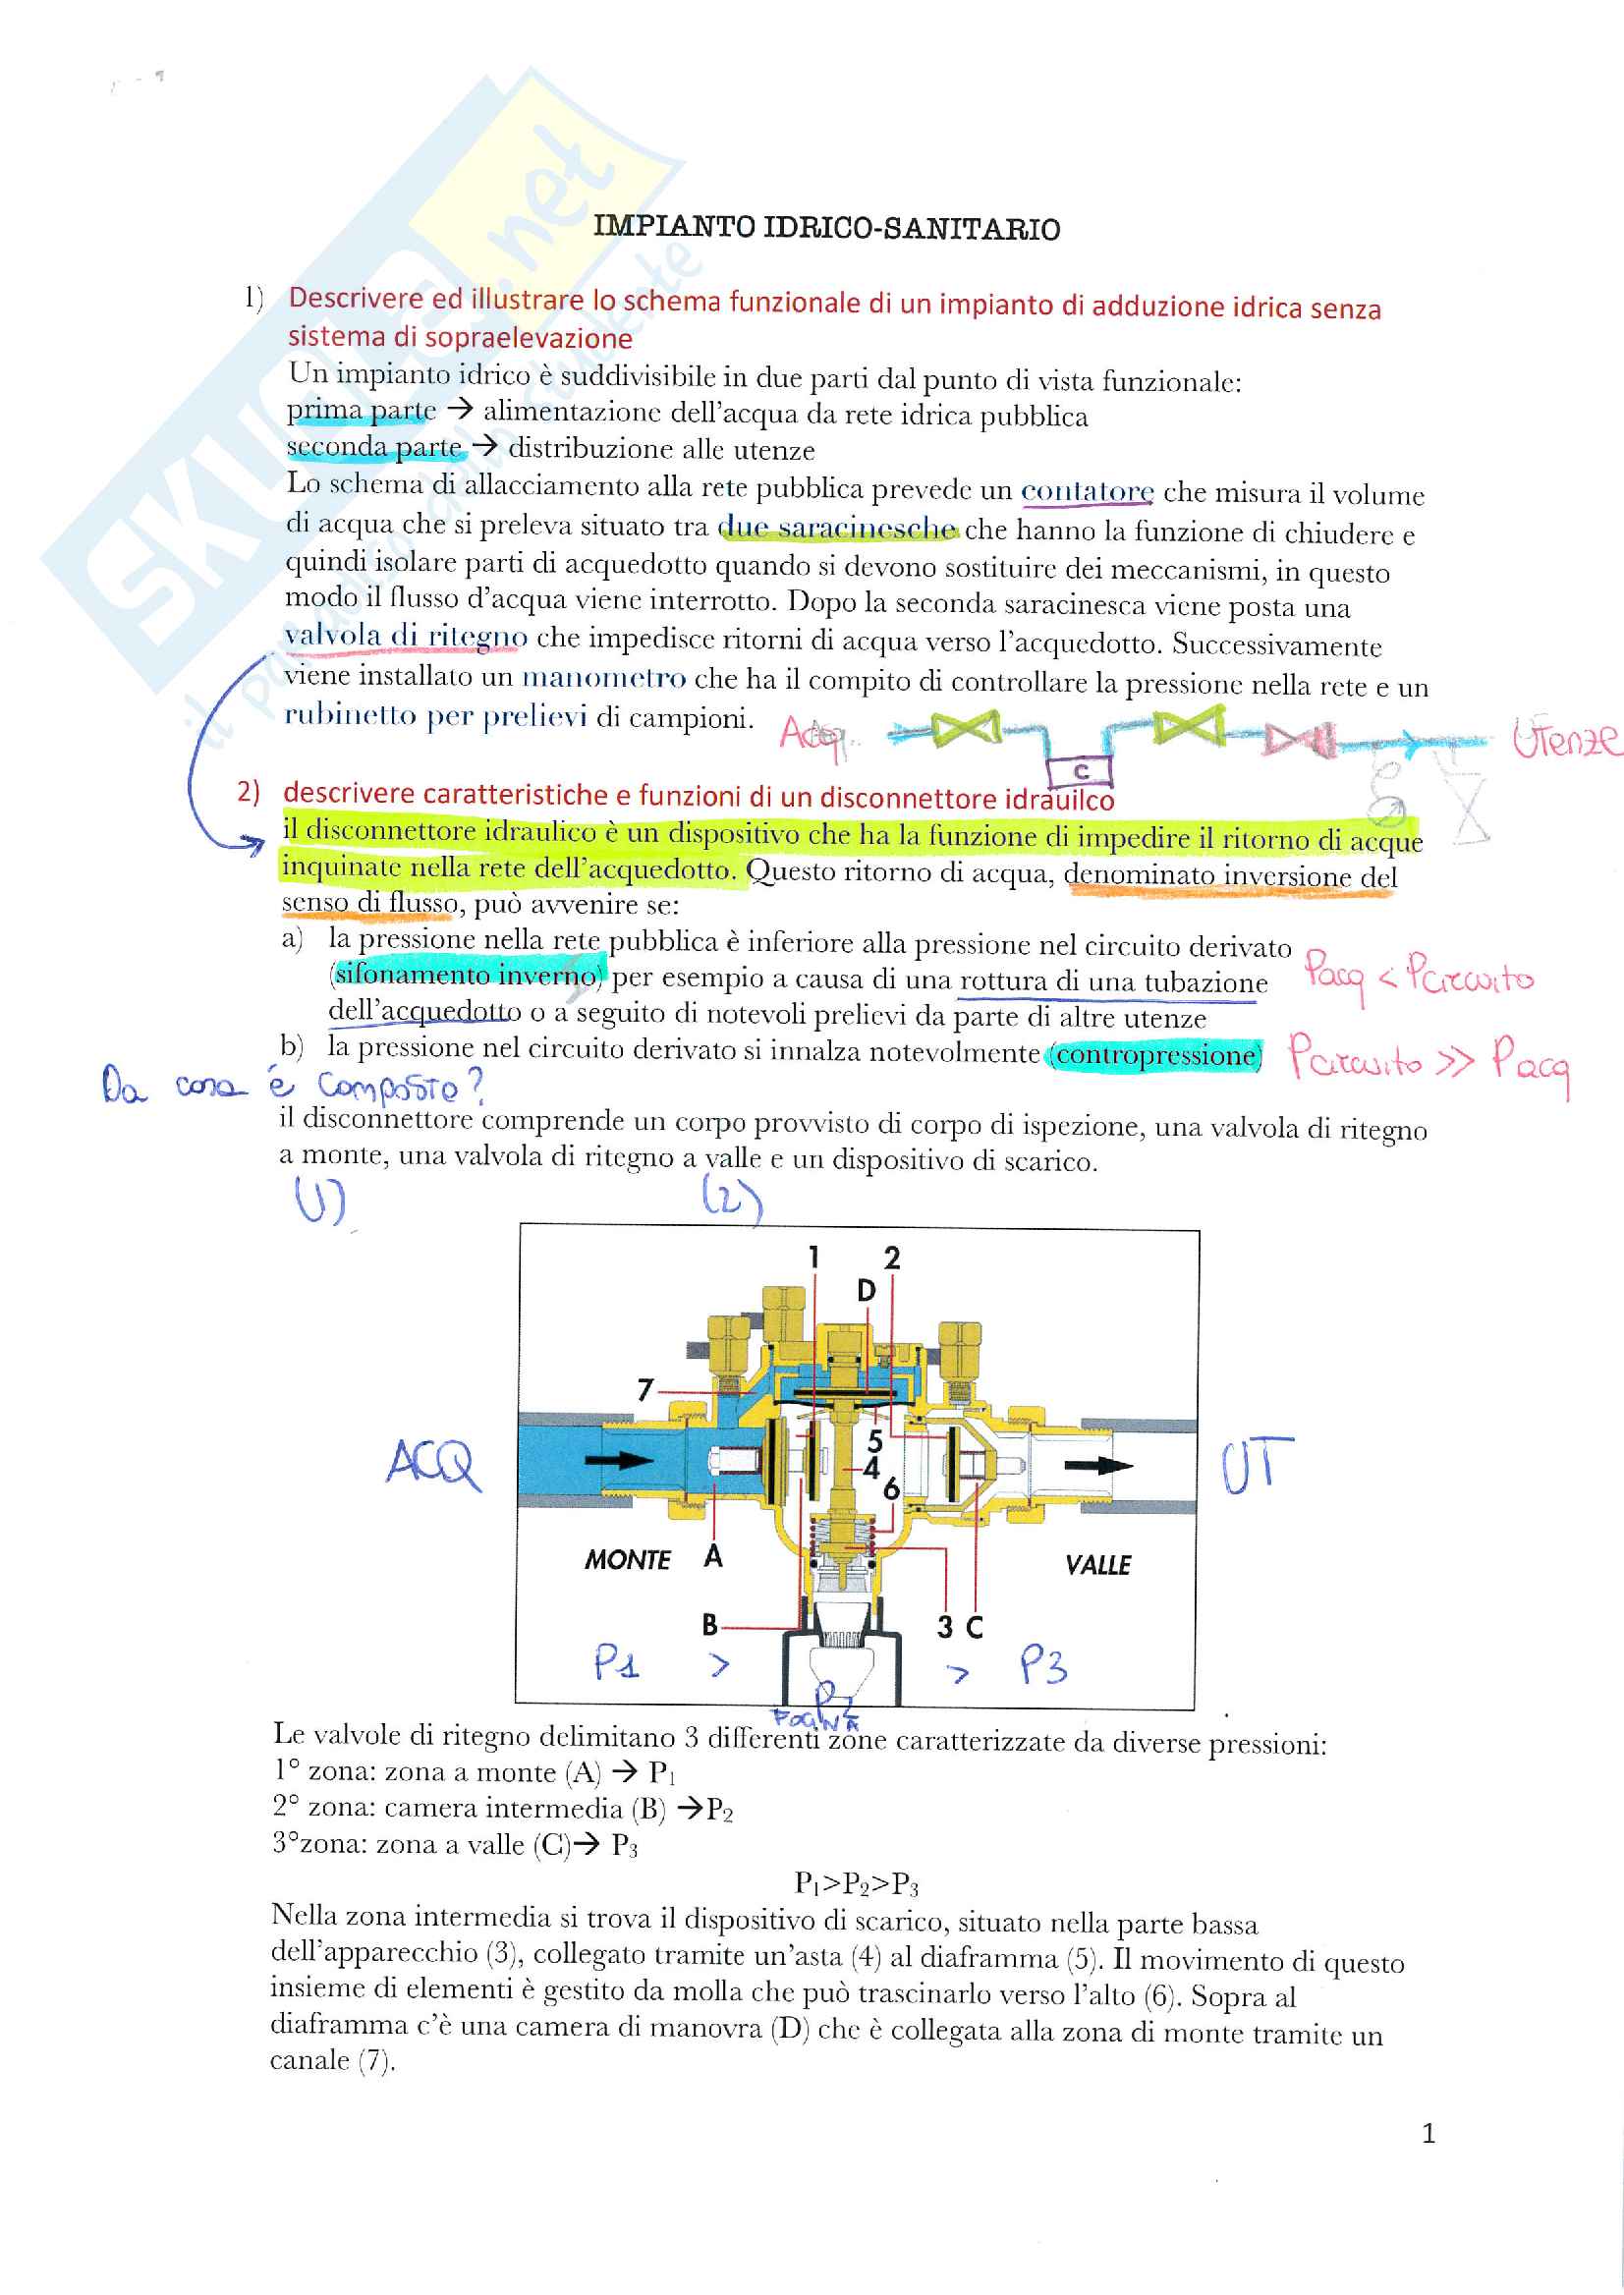 SKUOLA.net
il paradiso dello studente
IMPIANTO IDRICO-SANITARIO
1) Descrivere ed illustrare lo schema funzionale di un impianto di adduzione idrica senza
sistema di sopraelevazione
Un impianto idrico è suddivisibile in due parti dal punto di vista funzionale:
prima parte → alimentazione dell'acqua da rete idrica pubblica
seconda parte → distribuzione alle utenze
Lo schema di allacciamento alla rete pubblica prevede un contatore che misura il volume
di acqua che si preleva situato tra due saracinesche che hanno la funzione di chiudere e
quindi isolare parti di acquedotto quando si devono sostituire dei meccanismi, in questo
modo il flusso d'acqua viene interrotto. Dopo la seconda saracinesca viene posta una
valvola di ritegno che impedisce ritorni di acqua verso l'acquedotto. Successivamente
viene installato un manometro che ha il compito di controllare la pressione nella rete e un
rubinetto per prelievi di campioni.
Acq.
C
Utenze
2) descrivere caratteristiche e funzioni di un disconnettore idrauilco
il disconnettore idraulico è un dispositivo che ha la funzione di impedire il ritorno di acque
inquinate nella rete dell'acquedotto. Questo ritorno di acqua, denominato inversione del
senso di flusso, può avvenire se:
a) la pressione nella rete pubblica è inferiore alla pressione nel circuito derivato
(sifonamento inverno) per esempio a causa di una rottura di una tubazione
Pacq < Pcircuito
dell'acquedotto o a seguito di notevoli prelievi da parte di altre utenze
b) la pressione nel circuito derivato si innalza notevolmente (contropressione)
Pcircuito >> Pacq
Da cosa é composto?
il disconnettore comprende un corpo provvisto di corpo di ispezione, una valvola di ritegno
a monte, una valvola di ritegno a valle e un dispositivo di scarico.
(1) (2)
1 2
D
7
5
4
6
ACQ
UT
MONTE A
VALLE
B
3 C
P1 > > P3
P2
FOGNA
Le valvole di ritegno delimitano 3 differenti zone caratterizzate da diverse pressioni:
1° zona: zona a monte (A) → P1
2° zona: camera intermedia (B) →P2
3°zona: zona a valle (C)→ P3
P1>P2>P3
Nella zona intermedia si trova il dispositivo di scarico, situato nella parte bassa
dell'apparecchio (3), collegato tramite un'asta (4) al diaframma (5). Il movimento di questo
insieme di elementi è gestito da molla che può trascinarlo verso l'alto (6). Sopra al
diaframma c'è una camera di manovra (D) che è collegata alla zona di monte tramite un
canale (7).
1